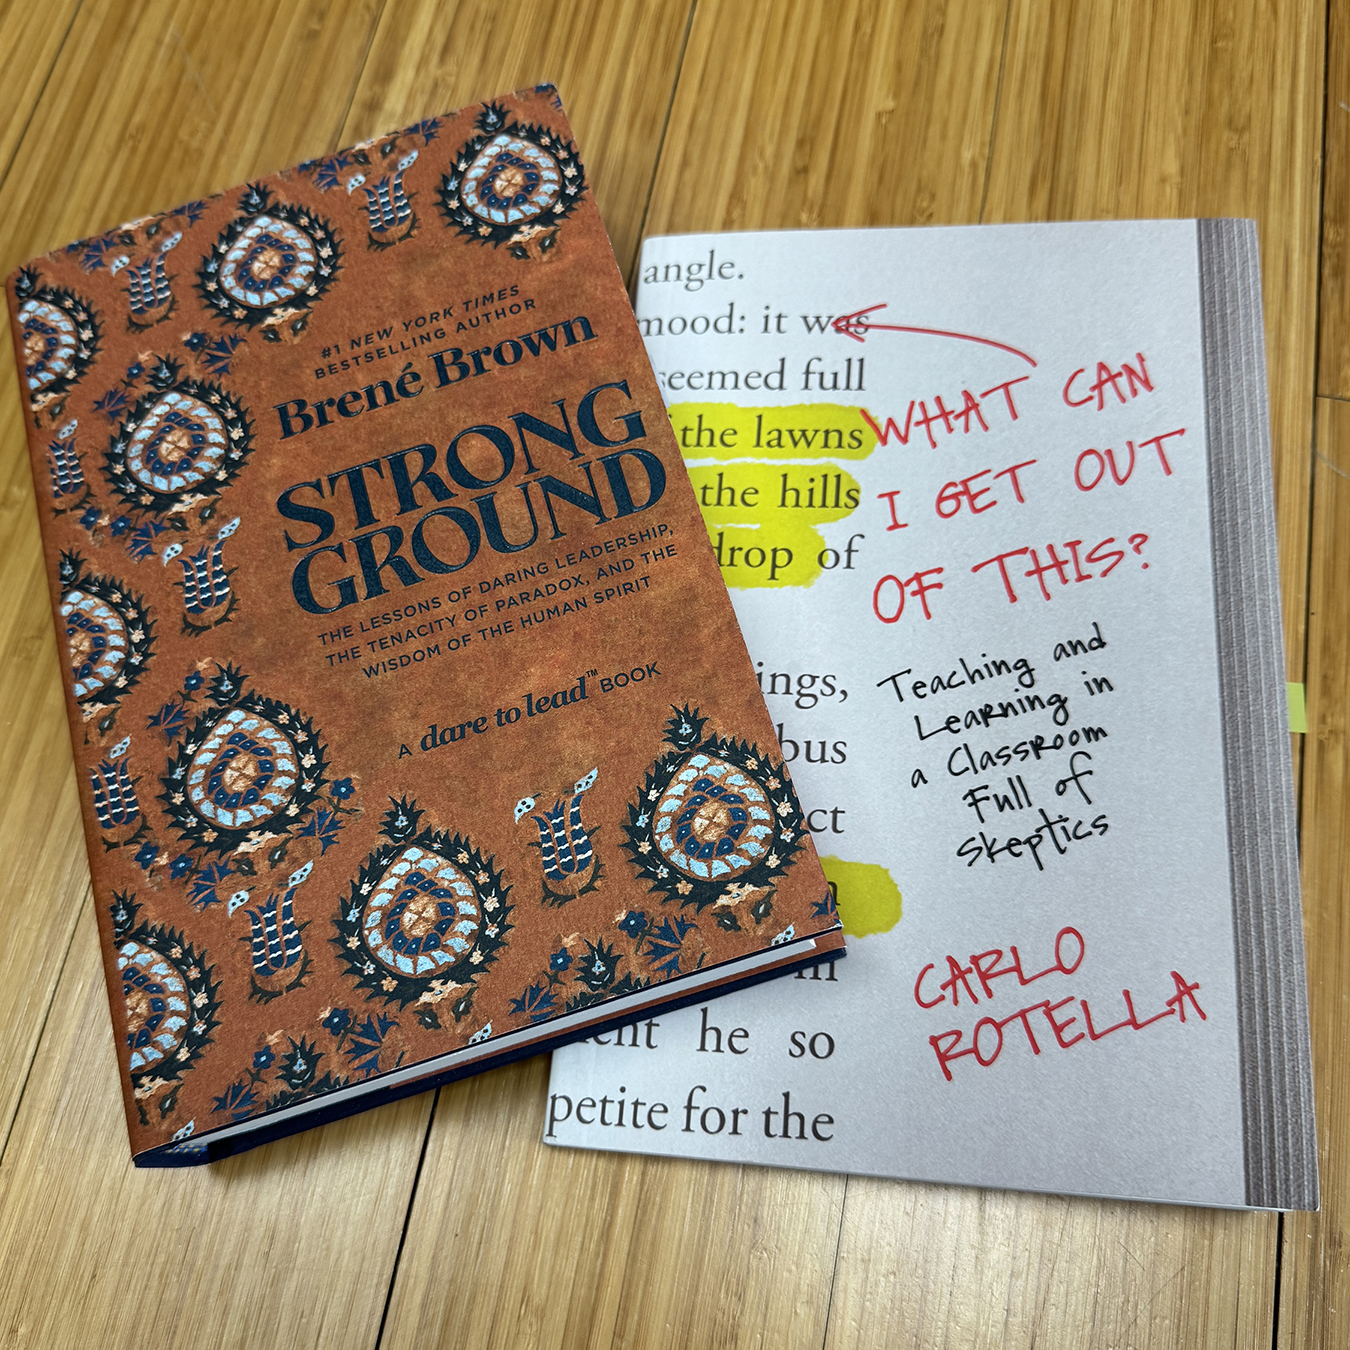 #1 NEW YORK TIMES
BESTSELLING AUTHOR
Brené Brown
STRONG
GROUND
THE LESSONS OF DARING LEADERSHIP,
THE TENACITY OF PARADOX, AND THE
WISDOM OF THE HUMAN SPIRIT
A dare to lead™ BOOK
angle.
mood: it was
seemed full
the lawns
the hills
drop of
ings,
bus
ct
he so
petite for the
WHAT CAN
I GET OUT
OF THIS?
Teaching and
Learning in
a Classroom
Full of
Skeptics
CARLO
ROTELLA